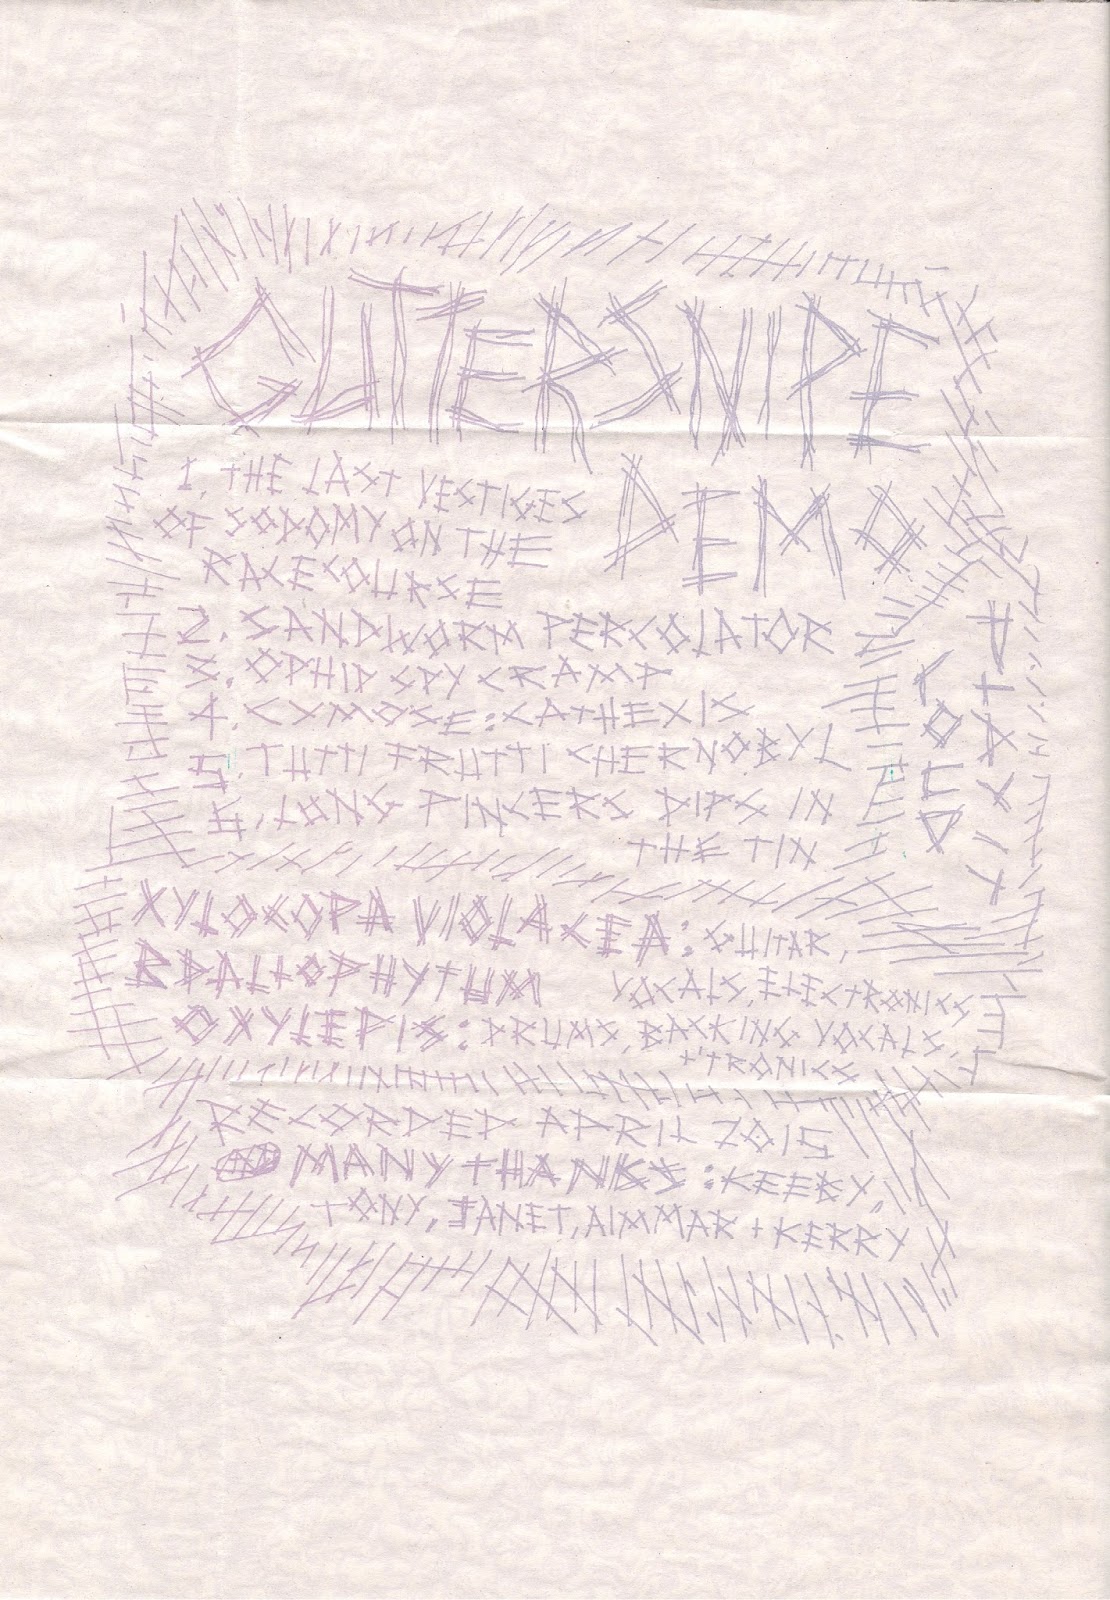 GUTTERSNIPE
DEMO
1. THE LAST VESTIGES
OF SODOMY ON THE
RACECOURSE
2. SANDWORM PERCOLATOR
3. OPHID SPY CRAMP
4. CYMOSE: CATHEXIS
5. TUTTI FRUTTI CHERNOBYL
6. LONG PINCERS DIPS IN
THE TIN
LOUD
XYLOCOPA VIOLACEA: GUITAR,
VOCALS, ELECTRONICS
BDALLOPHYTUM
OXYLEPIS: DRUMS, BACKING VOCALS,
+'TRONICS
RECORDED APRIL 2015
MANY THANKS: KEEBY,
TONY, JANET, AIMMAR + KERRY